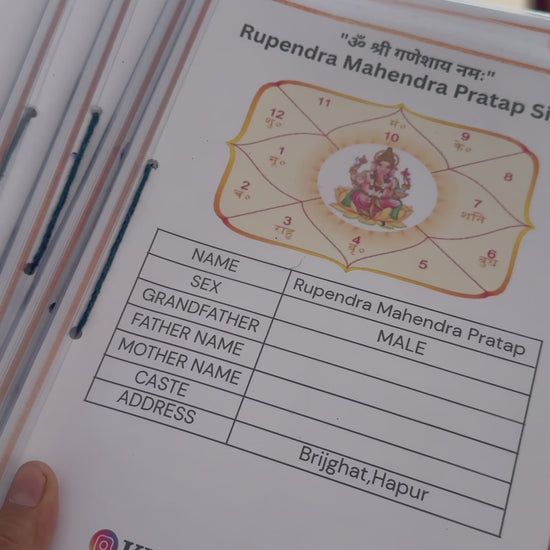 "ॐ श्री गणेशाय नमः"
Rupendra Mahendra Pratap
11
12
शु०
मं०
10
9
के०
8
1
सू०
2
चं०
7
शनि
3
राहु
4
बृ०
5
6
बुध
NAME Rupendra Mahendra Pratap
SEX MALE
GRANDFATHER
FATHER NAME
MOTHER NAME
CASTE
ADDRESS Brijghat,Hapur